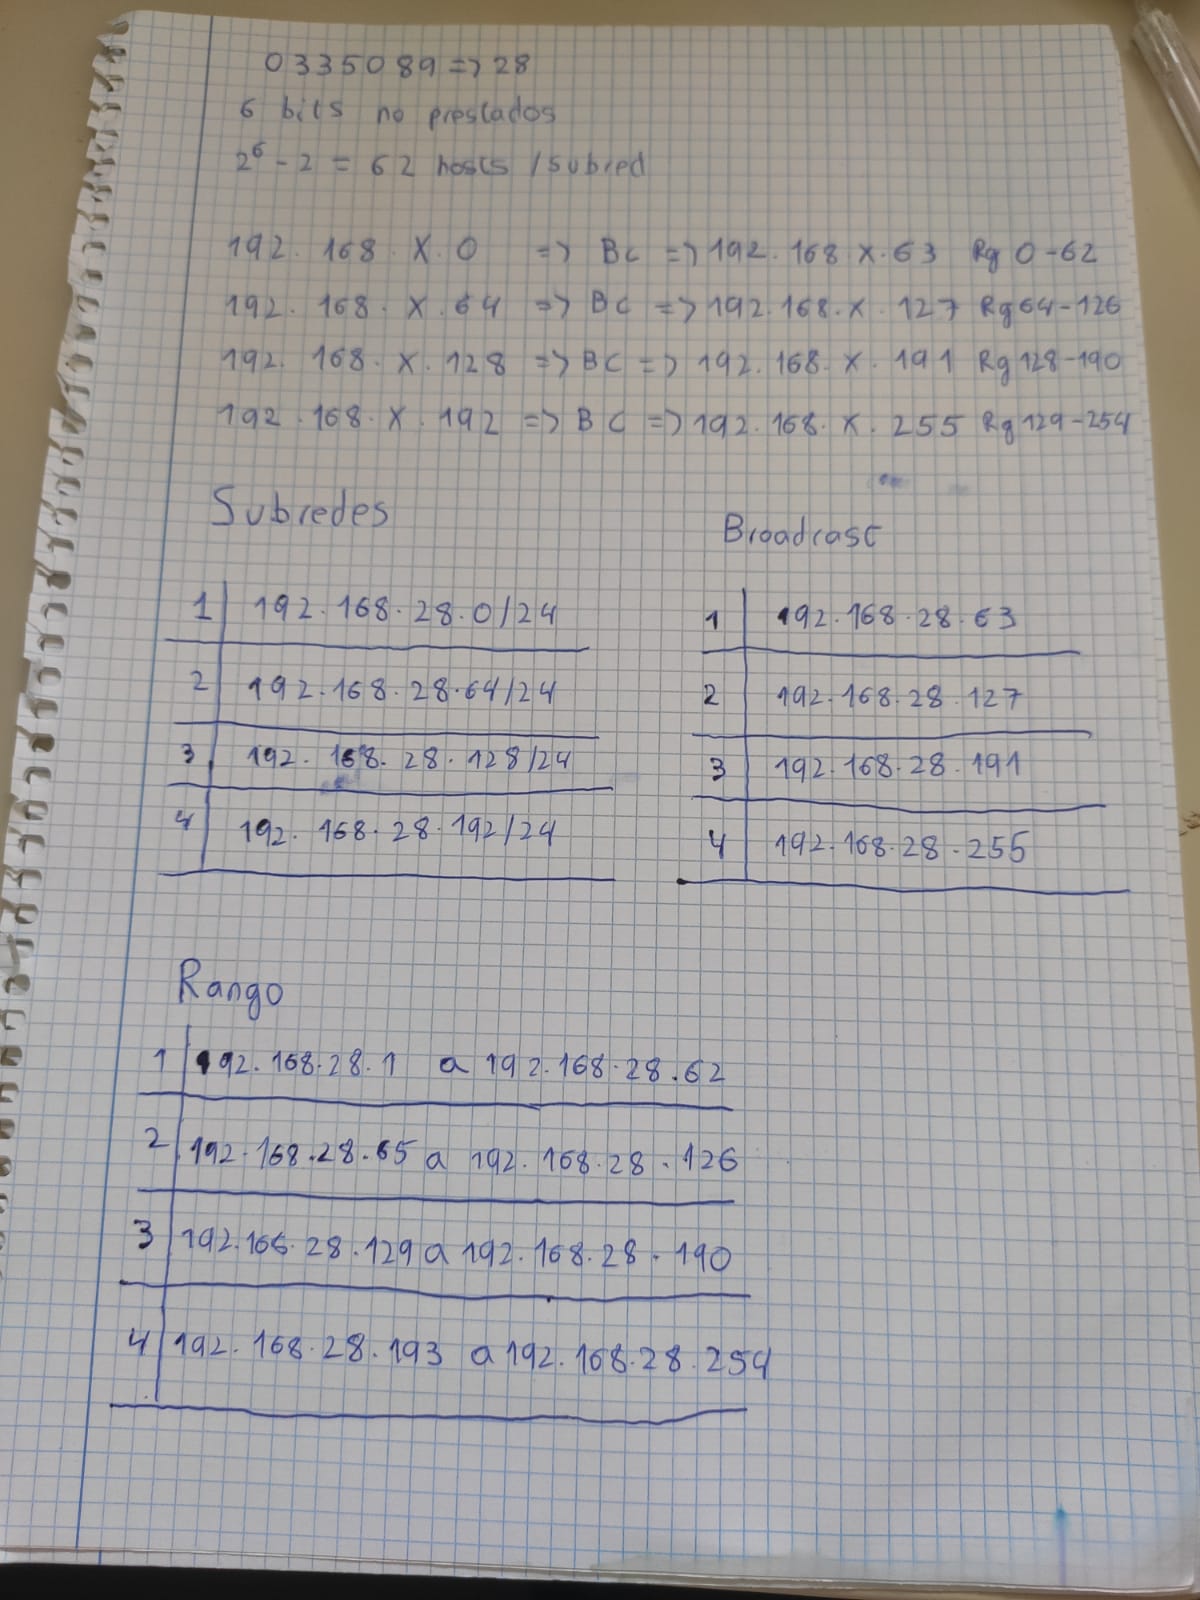 0335089 => 28
6 bits no prestados
2⁶ - 2 = 62 hosts / subred
192. 168. X. 0 => BC => 192. 168. X. 63 Rg 0-62
192. 168. X. 64 => BC => 192. 168. X. 127 Rg 64-126
192. 168. X. 128 => BC => 192. 168. X. 191 Rg 128-190
192. 168. X. 192 => BC => 192. 168. X. 255 Rg 129-254
Subredes
1 192. 168. 28. 0/24
2 192. 168. 28. 64/24
3 192. 168. 28. 128/24
4 192. 168. 28. 192/24
Broadcast
1 192. 168. 28. 63
2 192. 168. 28. 127
3 192. 168. 28. 191
4 192. 168. 28. 255
Rango
1 192. 168. 28. 1 a 192. 168. 28. 62
2 192. 168. 28. 65 a 192. 168. 28. 126
3 192. 166. 28. 129 a 192. 168. 28. 190
4 192. 168. 28. 193 a 192. 168. 28. 254